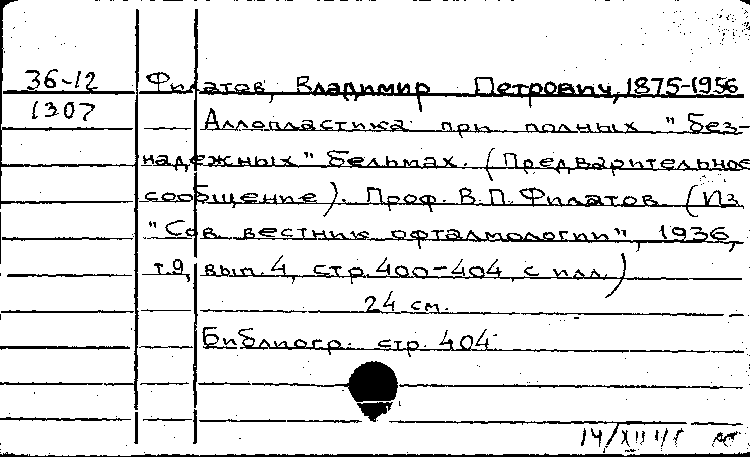 36-12 Филатов, Владимир Петрович, 1875-1956
1307 Аллопластика при полных "без-
надежных" бельмах. (Предварительное
сообщение). Проф. В.П. Филатов. (Из
"Сов. вестник офталмологии", 1936,
т.9, вып. 4, стр. 400-404, с илл.)
24 см.
Библиогр. стр. 404.
14/XII